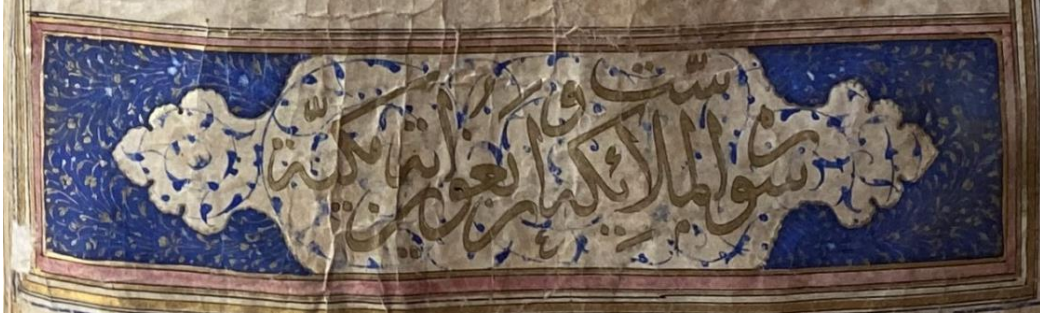 سورة الملائكة ستّ واربعون اية مكيّة